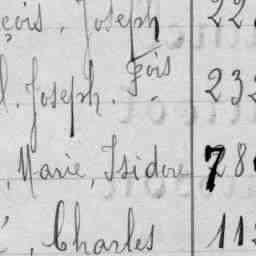 çois, Joseph 22
fois
l. Joseph. 232
, Marie, Isidore 78
, Charles 11